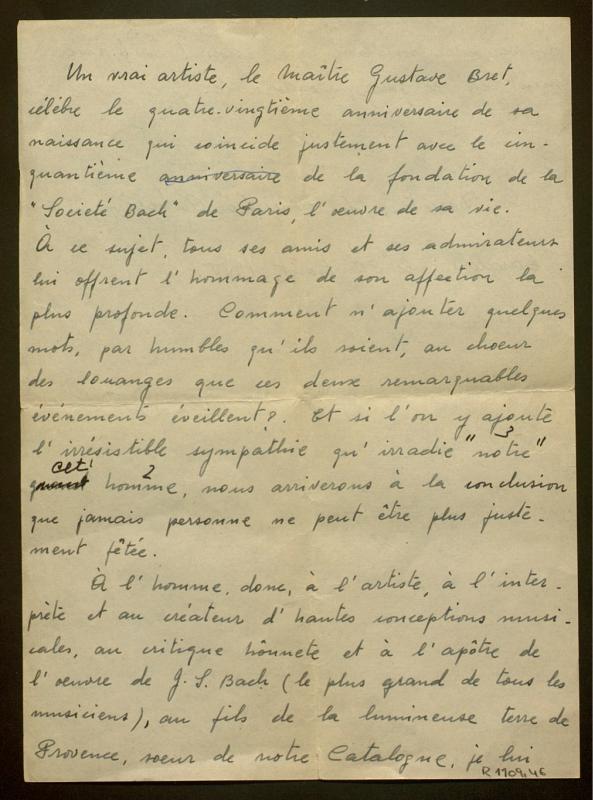 Un vrai artiste, le Maître Gustave Bret,
célèbre le quatre-vingtième anniversaire de sa
naissance qui coincide justement avec le cin-
quantième anniversaire de la fondation de la
"Societé Bach" de Paris, l'œuvre de sa vie.
À ce sujet, tous ses amis et ses admirateurs
lui offrent l'hommage de son affection la
plus profonde. Comment n'ajouter quelques
mots, par humbles qu'ils soient, au choeur
des louanges que ces deux remarquables
événements éveillent?. Et si l'on y ajoute
3
l'irrésistible sympathie qu'irradie "notre"
cet 2
homme, nous arriverons à la conclusion
que jamais personne ne peut être plus juste-
ment fêtée.
À l'homme, donc, à l'artiste, à l'inter-
prète et au créateur d'hautes conceptions musi-
cales, au critique hônnete et à l'apôtre de
l'œuvre de J. S. Bach (le plus grand de tous les
musiciens), au fils de la lumineuse terre de
Provence, soeur de notre Catalogne, je lui
R 1109,46